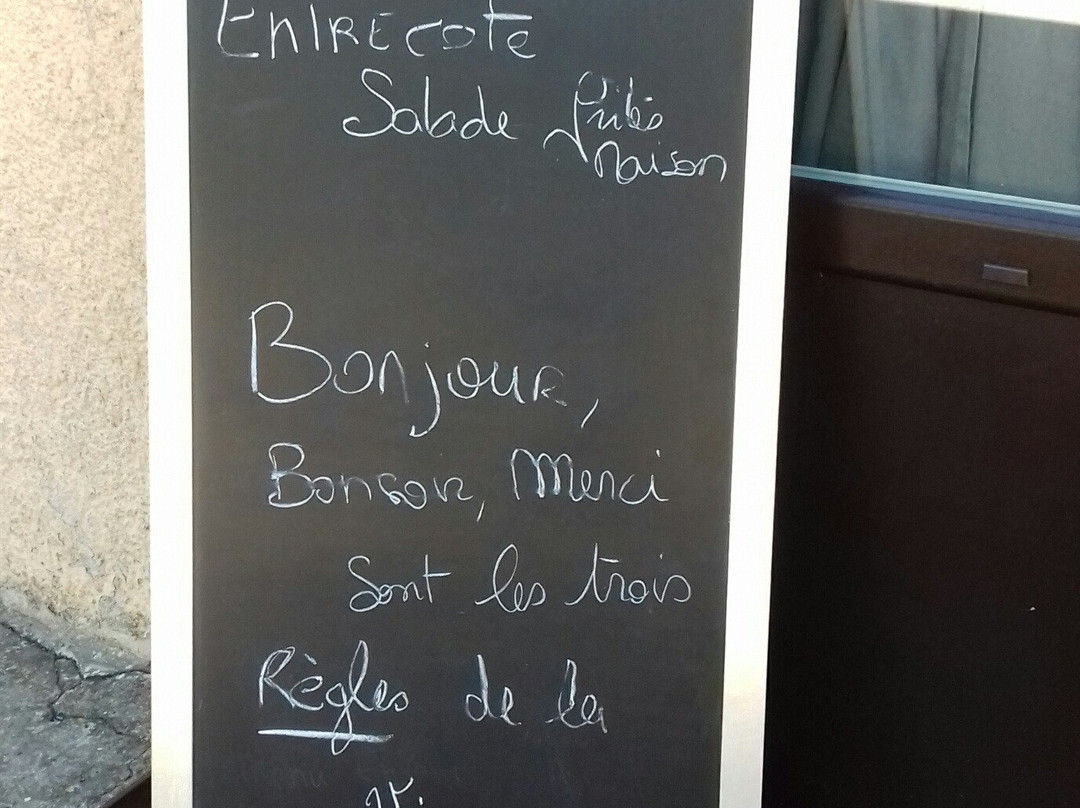 ENTRECOTE
Salade frites
Maison
Bonjour,
Bonsoir, Merci
Sont les trois
Règles de la